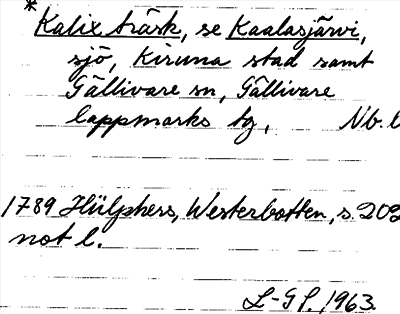 *
Kalix träsk, se Kaalasjärvi,
sjö, Kiruna stad samt
Gällivare sn, Gällivare
lappmarks tg, Nb. l
1789 Hülphers, Westerbotten, s. 203
not l.
L-G L. 1963.